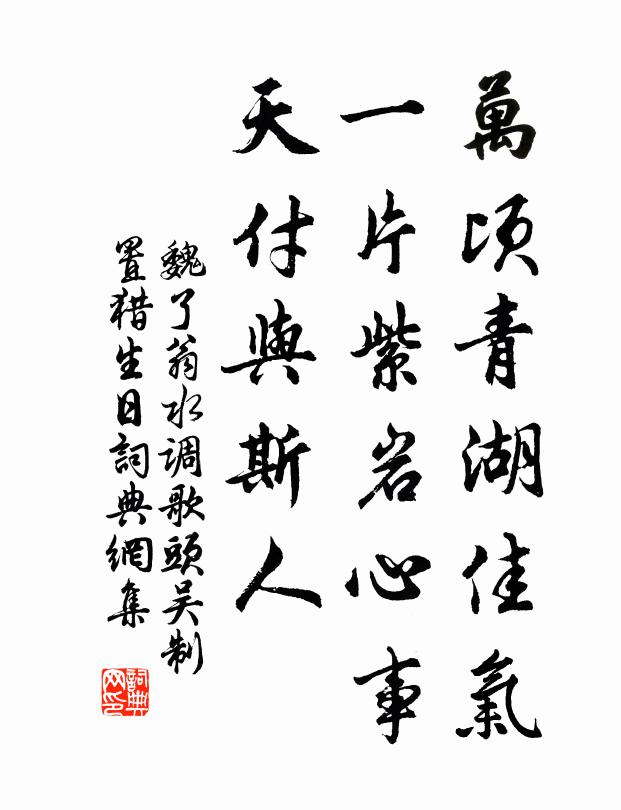 萬頃青湖佳氣
一片紫岩心事
天付與斯人
魏了翁水调歌頭吴制
置猎生日詞典網集
詞典
网印